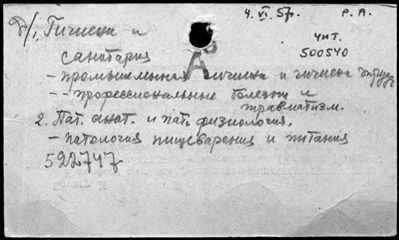 4. VI. 57г. Р. А.
чит.
500540
1. Гигиена и
санитария
А
- промышленная гигиена и гигиена труда
- профессиональные болезни и
травматизм.
2. Пат. анат. и пат. физиология.
- патология пищеварения и питания
522747